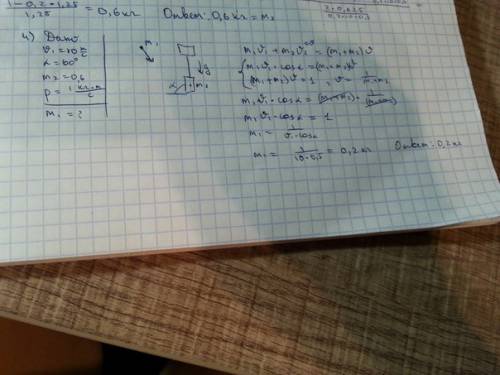 1-0,2·1,25 / 1,25 = 0,6 кг Ответ: 0,6 кг = m₂
4) Дано
v₁ = 10 м/с
α = 60°
m₂ = 0,6
p = 1 кг·м/с
m₁ = ?
m₁
α m₂
m₁v₁ + m₂v₂ = (m₁+m₂)v
m₁v₁·cosα = (m₁+m₂)v
(m₁+m₂)v = 1, v = 1/(m₁+m₂)
m₁v₁·cosα = (m₁+m₂)·1/(m₁+m₂)
m₁v₁·cosα = 1
m₁ = 1/(v₁·cosα)
m₁ = 1/(10·0,5) = 0,2 кг Ответ: 0,2 кг